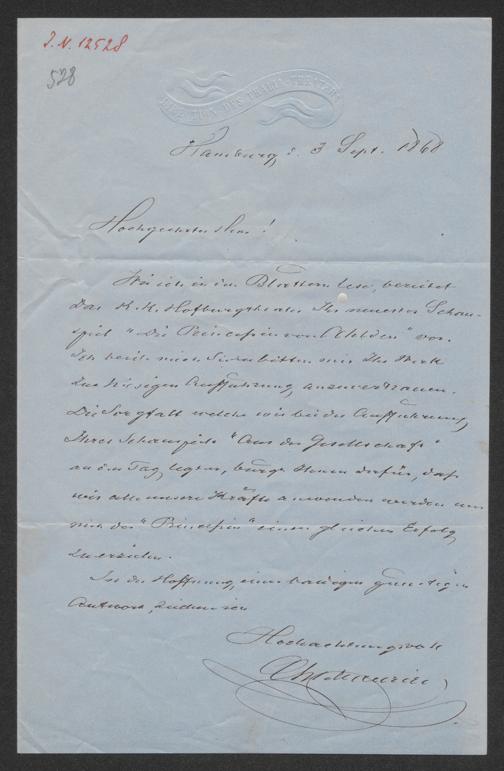 I.N. 12528
528
DIRECTION DES THALIA-THEATERS
Hamburg, d. 3 Sept. 1868
Hochgeehrter Herr!
Wie ich in den Blättern lese, bereitet
das K. K. Hofburgtheater Ihr neuestes Schau-
spiel "Die Prinzessin von Ahlden" vor.
Ich beeile mich Sie zu bitten mir Ihr Werk
zur hiesigen Aufführung, anzuvertrauen.
Die Sorgfalt welche wir bei der Aufführung,
Ihres Schauspiels "Aus der Gesellschaft"
an den Tag, legten, bürge Ihnen dafür, daß
wir alle unsere Kräfte anwenden werden um
mit der "Prinzessin" einen gleichen Erfolg,
zu erzielen.
In der Hoffnung, einer baldigen günstigen
Antwort, zeichne ich
Hochachtungsvoll
Chr. Maurice